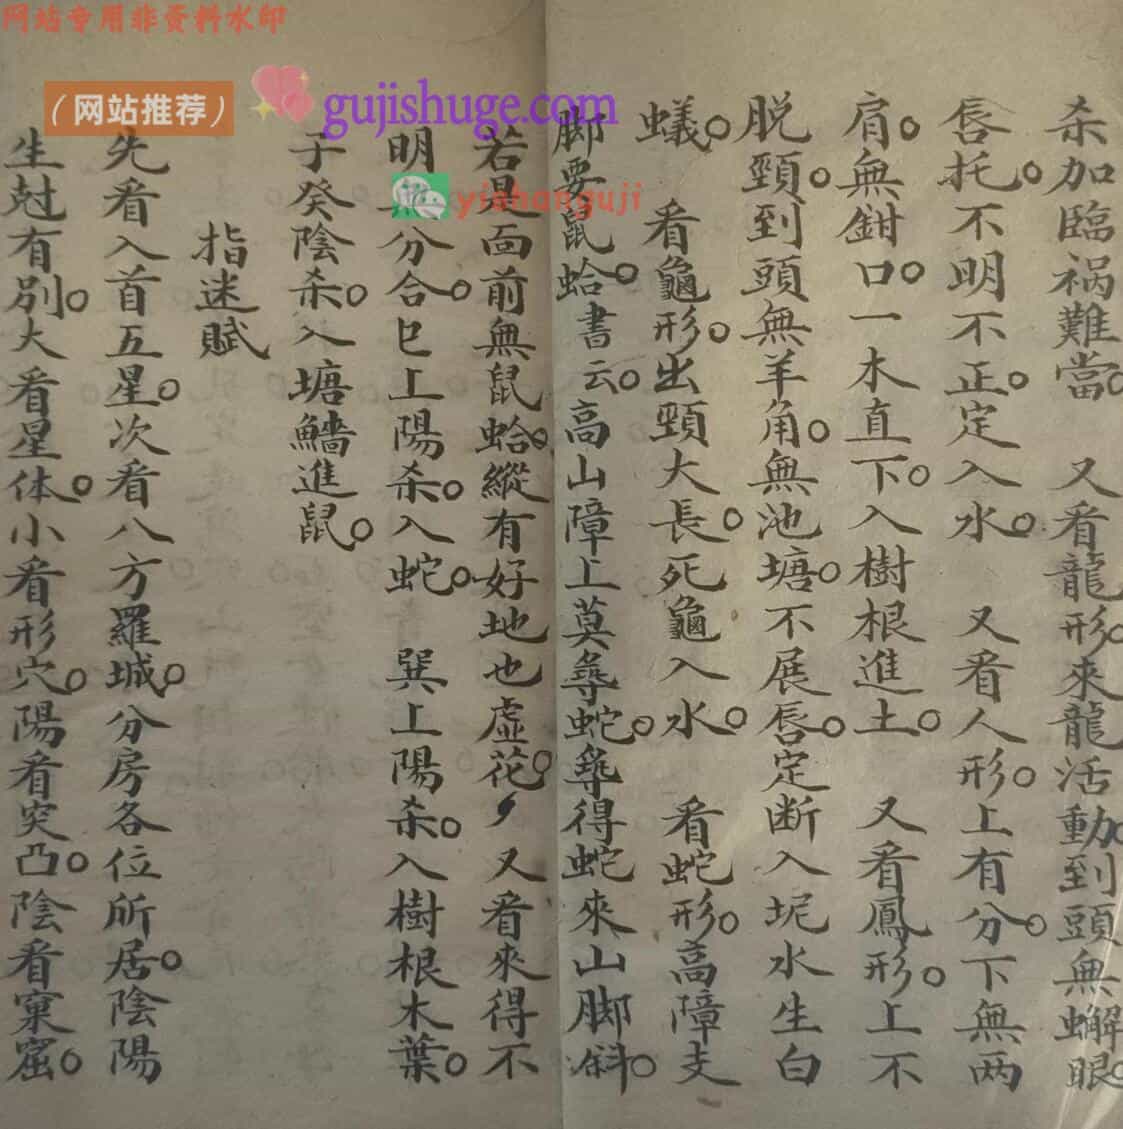 网站专用非资料水印
（网站推荐）
gujishuge.com
yishanguji
杀加臨祸難當○　又看龍形○來龍活動○到頭無蠏眼○
唇托○不明不正○定入水○　又看人形○上有分○下無两
肩○無鉗口○一木直下○入樹根進土○　又看鳳形○上不
脱頸○到頭無羊角○無池塘○不展唇○定断入坭水生白
蟻○　看龜形○出頸大長○死龜入水○　看蛇形○高障支
脚要鼠蛤○書云○高山障上莫尋蛇○尋得蛇來山脚斜○
若是面前無鼠蛤○縱有好地也虛花○　又看來得不
明分合○巳上陽杀○入蛇○　巽上陽杀○入樹根木葉○
子癸陰杀○入塘鱔進鼠○
指迷賦
先看入首五星○次看八方羅城○分房各位所居○陰陽
生尅有别○大看星体○小看形穴○陽看突凸○陰看窠窟○